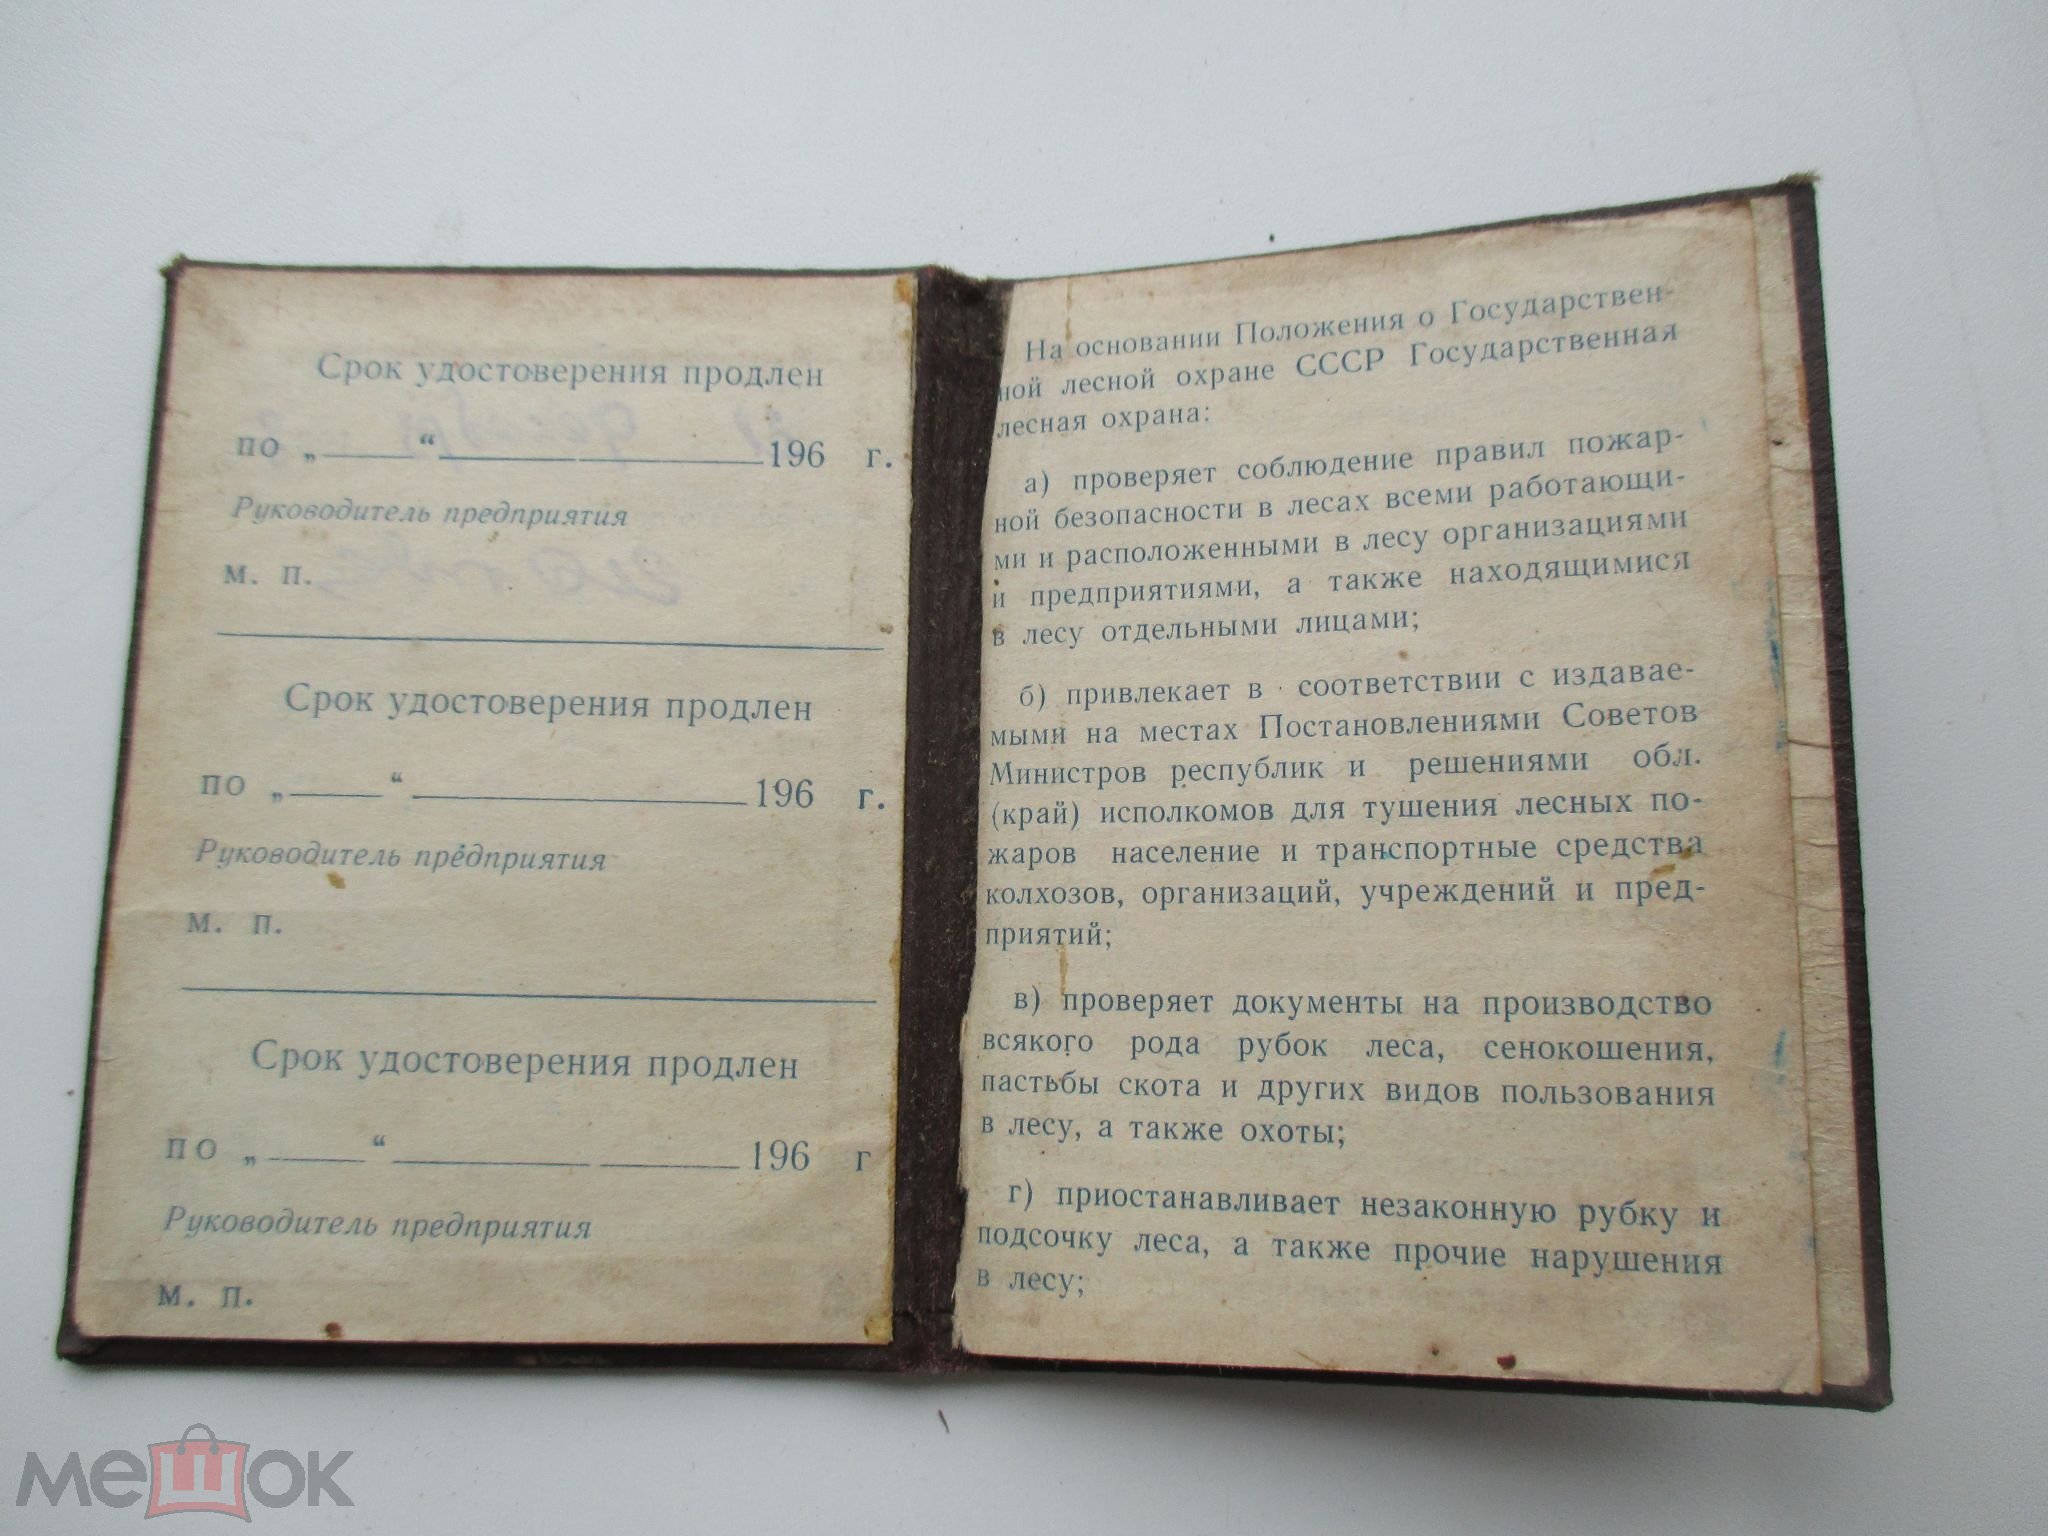 Срок удостоверения продлен
по „ “ 196 г.
Руководитель предприятия
м. п.
Срок удостоверения продлен
по „ “ 196 г.
Руководитель предприятия
м. п.
Срок удостоверения продлен
по „ “ 196 г
Руководитель предприятия
м. п.
На основании Положения о Государствен-
ной лесной охране СССР Государственная
лесная охрана:
а) проверяет соблюдение правил пожар-
ной безопасности в лесах всеми работающи-
ми и расположенными в лесу организациями
и предприятиями, а также находящимися
в лесу отдельными лицами;
б) привлекает в соответствии с издавае-
мыми на местах Постановлениями Советов
Министров республик и решениями обл.
(край) исполкомов для тушения лесных по-
жаров население и транспортные средства
колхозов, организаций, учреждений и пред-
приятий;
в) проверяет документы на производство
всякого рода рубок леса, сенокошения,
пастьбы скота и других видов пользования
в лесу, а также охоты;
г) приостанавливает незаконную рубку и
подсочку леса, а также прочие нарушения
в лесу;
мешок